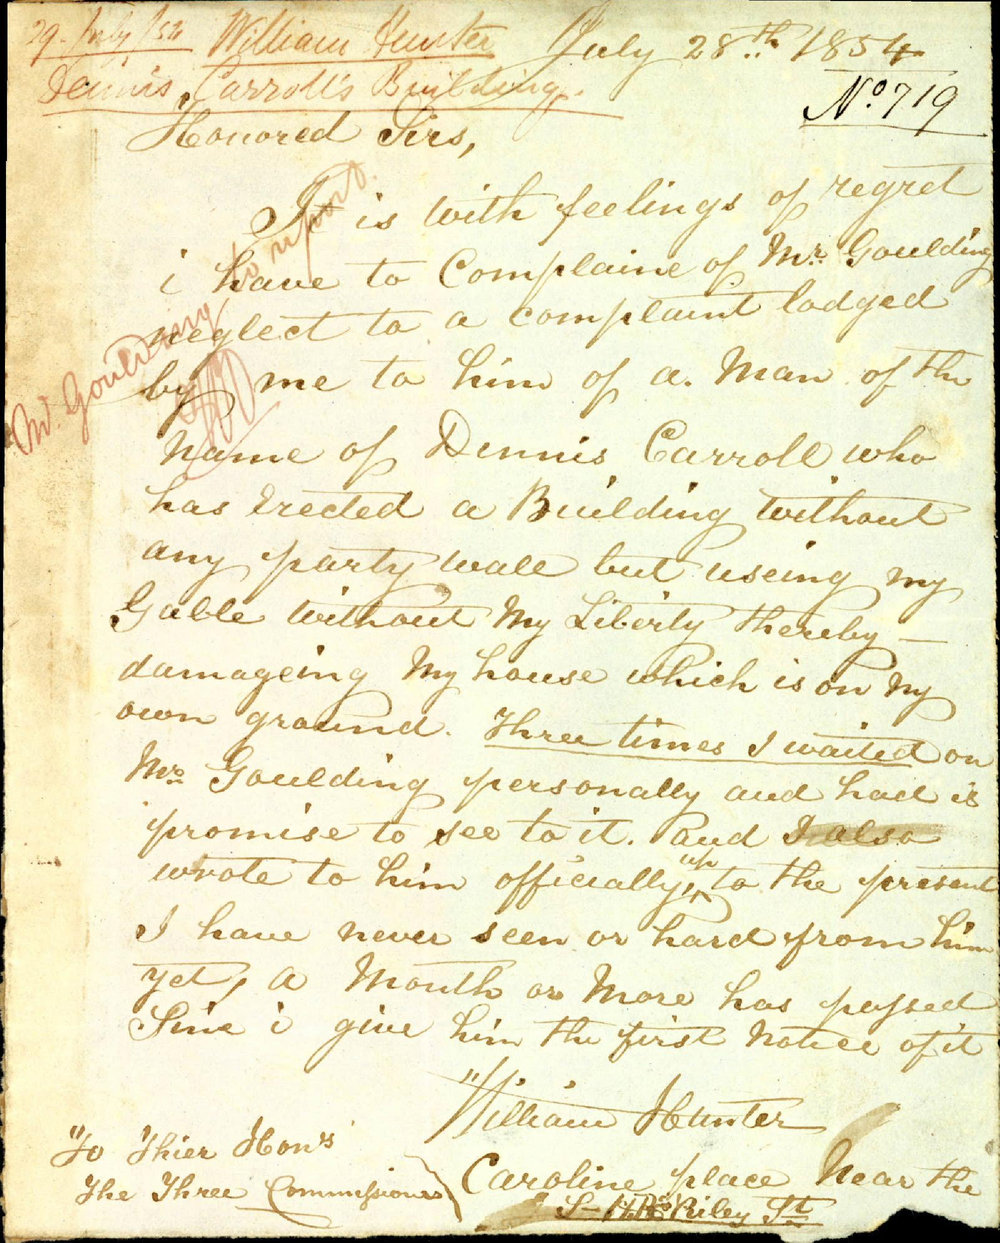 29. July /54 William Hunter
Dennis Carroll's Building.
July 28th. 1854
No. 719
Honored Sirs,
Mr. Goulding to report.
It is with feelings of regret
i have to Complaine of Mr. Goulding
neglect to a complaint lodged
by me to him of a. Man of the
Name of Dennis Carroll who
has Erected a Building without
any party wall but useing my
Gable without My Liberty thereby —
damageing My house which is on My
own ground. Three times I waited on
Mr. Goulding personally and had is
promise to see to it. and I also
wrote to him officially, up to the present
I have never seen or hard from him
yet, a Month or More has passed
Sine i give him the first Notice of it
William Hunter
Caroline place Near the
Riley St
"To Thier Hons
The Three Commissioners